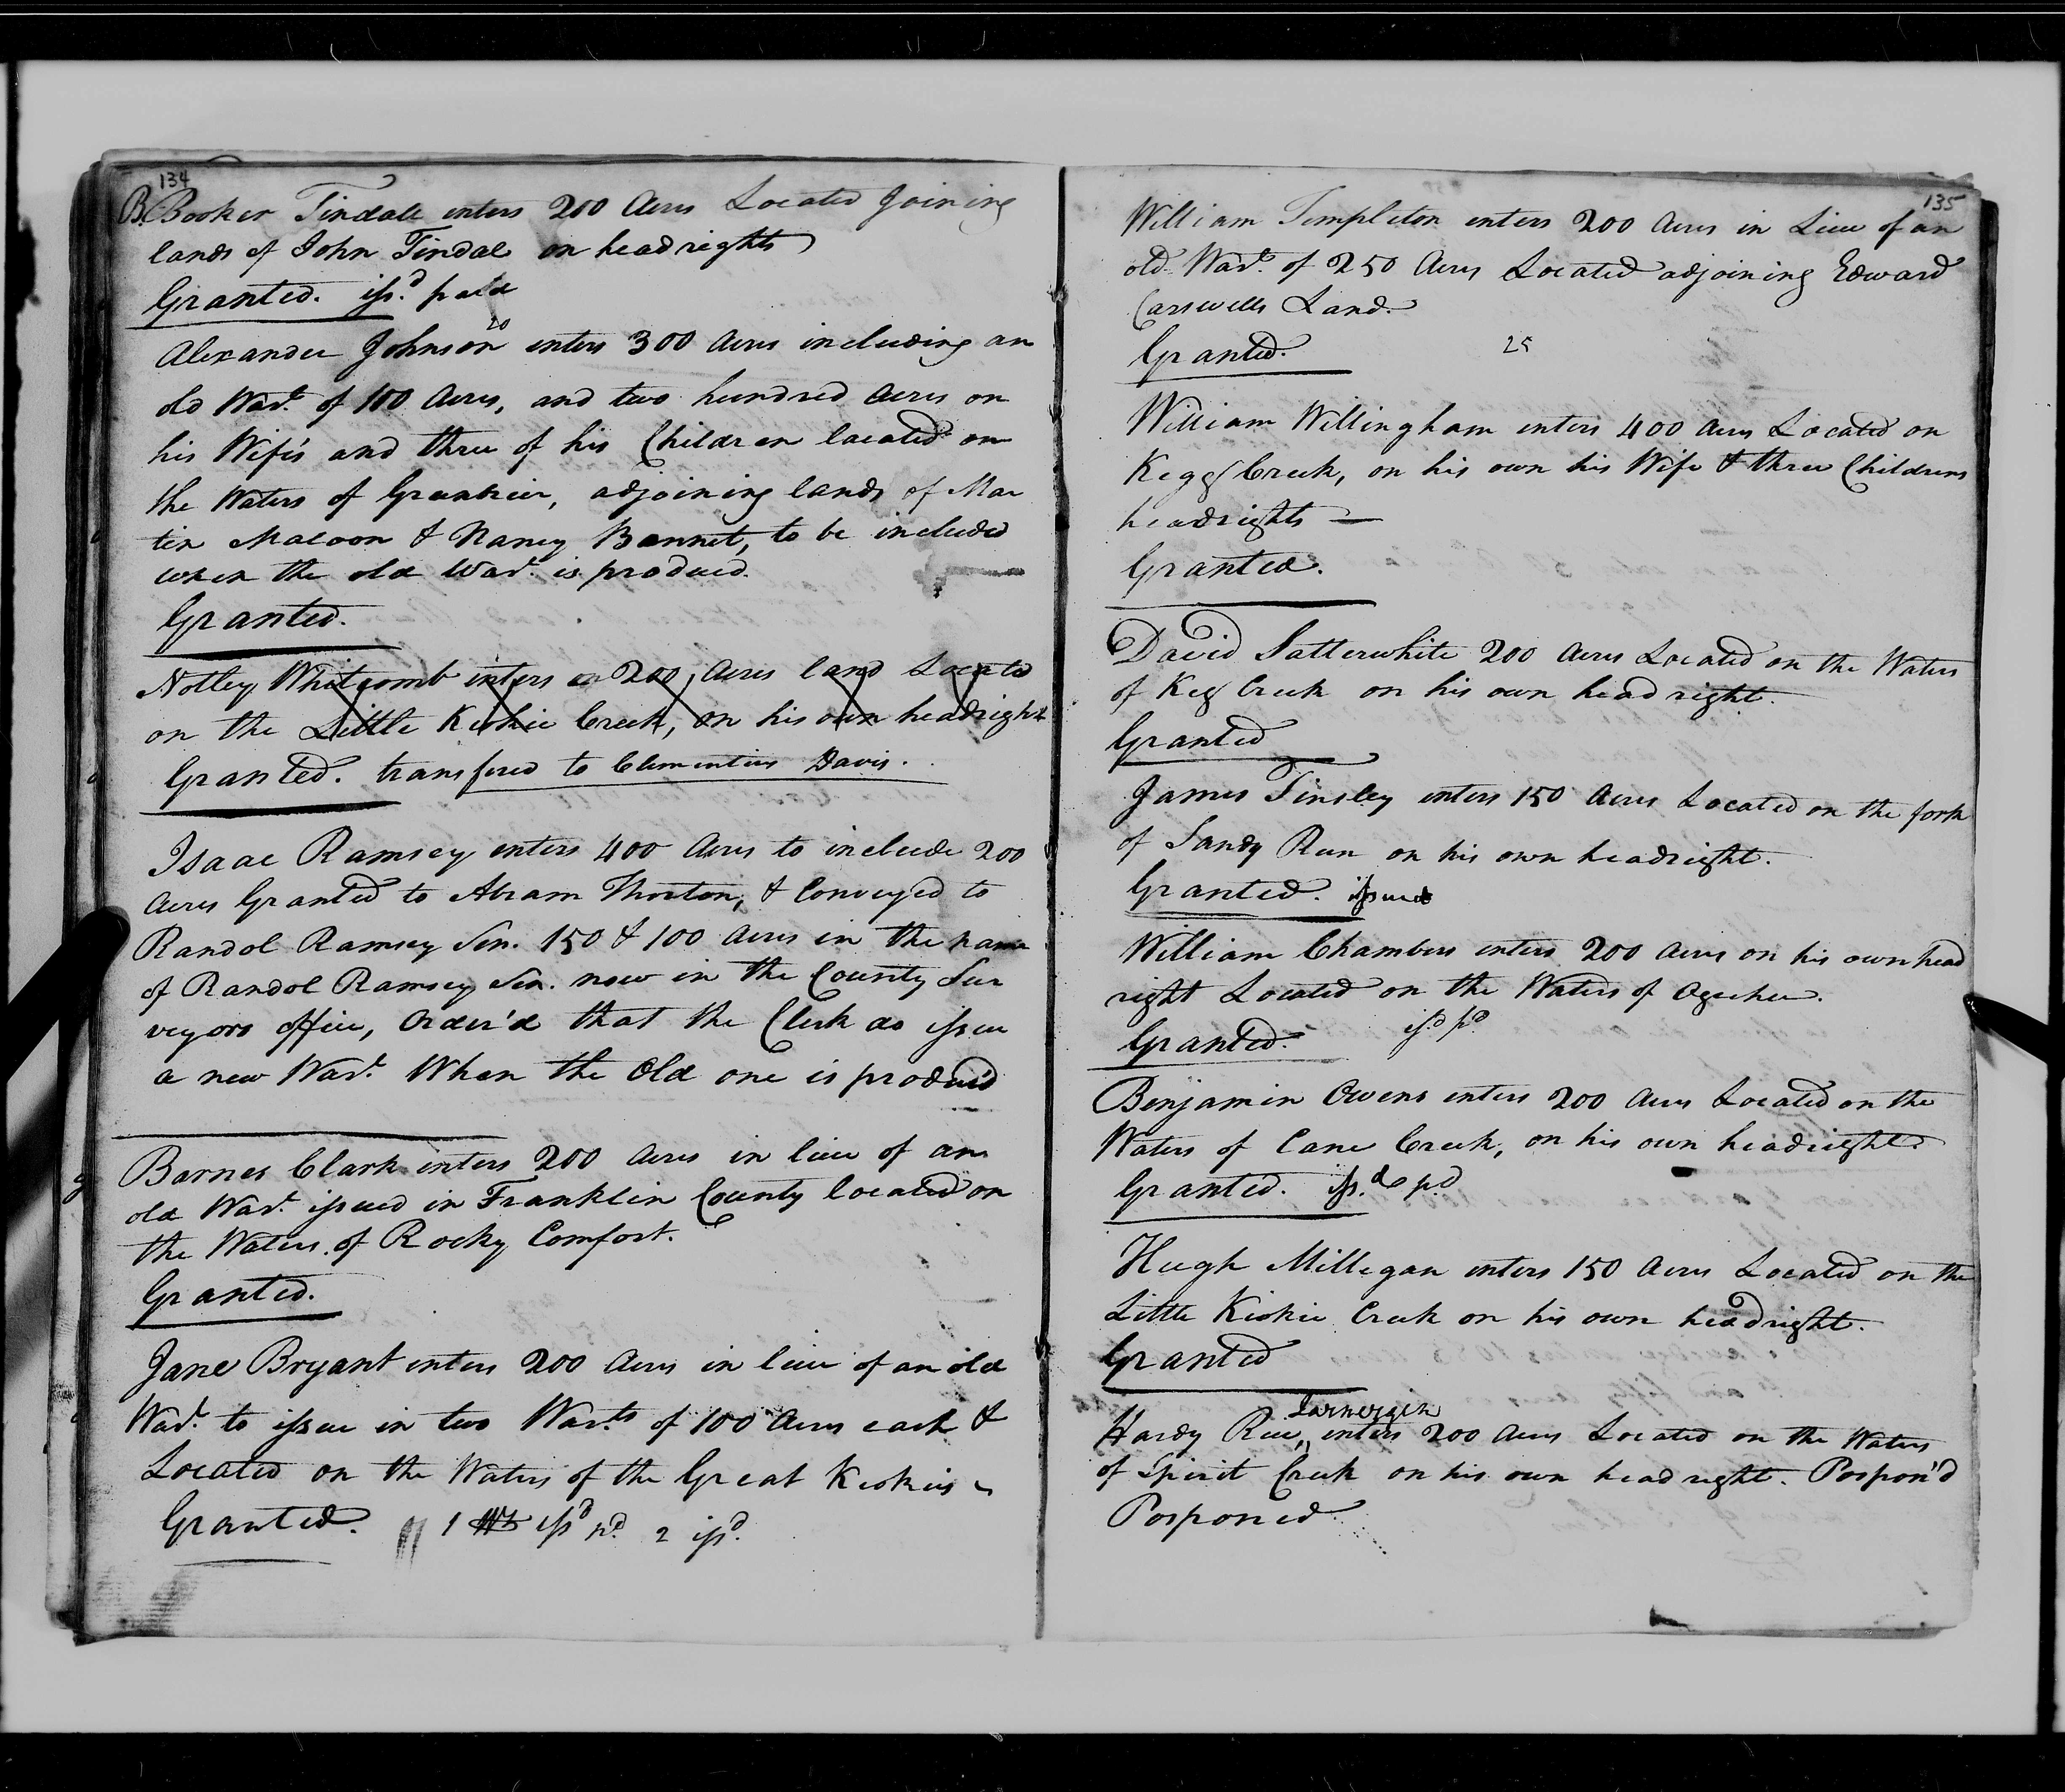 134
B. Booker Tindale enters 200 Acres Located Joining
lands of John Tindal on headrights
Granted. issd. paid
20
Alexander Johnson enters 300 Acres including an
old Wart. of 100 Acres, and two hundred Acres on
his Wife's and three of his Children located on
the Waters of Greenbrier, adjoining lands of Mar
tin Maloon & Nancy Bennet, to be included
when the old Wart. is produced.
Granted.
Notley Whitcomb enters a 200 Acres land Located
on the Little Kiokie Creek, on his own headright
Granted. transfered to Clementius Davis.
Isaac Ramsey enters 400 Acres to include 200
Acres Granted to Abram Thorton, & Conveyed to
Randol Ramsey Sen. 150 & 100 Acres in the name
of Randol Ramsey Sen. now in the County Sur
veyors office, Order'd that the Clerk do issue
a new Wart. When the Old one is produc'd
Barnes Clark enters 200 Acres in lieu of an
old Wart. issued in Franklin County located on
the Waters of Rocky Comfort.
Granted.
Jane Bryant enters 200 Acres in lieu of an old
Wart. to issue in two Warts. of 100 Acres each &
Located on the Waters of the Great Kiokies
Granted. 1 Wt issd pd. 2 issd.
135
William Templeton enters 200 Acres in Lieu of an
old Wart. of 250 Acres Located adjoining Edward
Carswells Land.
Granted. 25
William Willingham enters 400 Acres Located on
Kegg Creek, on his own his Wife & three Childrens
headrights —
Granted.
David Satterwhite 200 Acres Located on the Waters
of Keg Creek on his own head right.
Granted
James Tinsley enters 150 Acres Located on the fork
of Sandy Run on his own headright.
Granted. issued
William Chambers enters 200 Acres on his own head
right Located on the Waters of Ogechee.
Granted. isd pd
Benjamin Owens enters 200 Acres Located on the
Waters of Cane Creek, on his own headright.
Granted. issd. pd
Hugh Millegan enters 150 Acres Located on the
Little Kiokie Creek on his own headright.
Granted
Hardy Rue, enters 200 Acres Located on the Waters
of Spirit Creek on his own head right. Pospon'd
Posponed